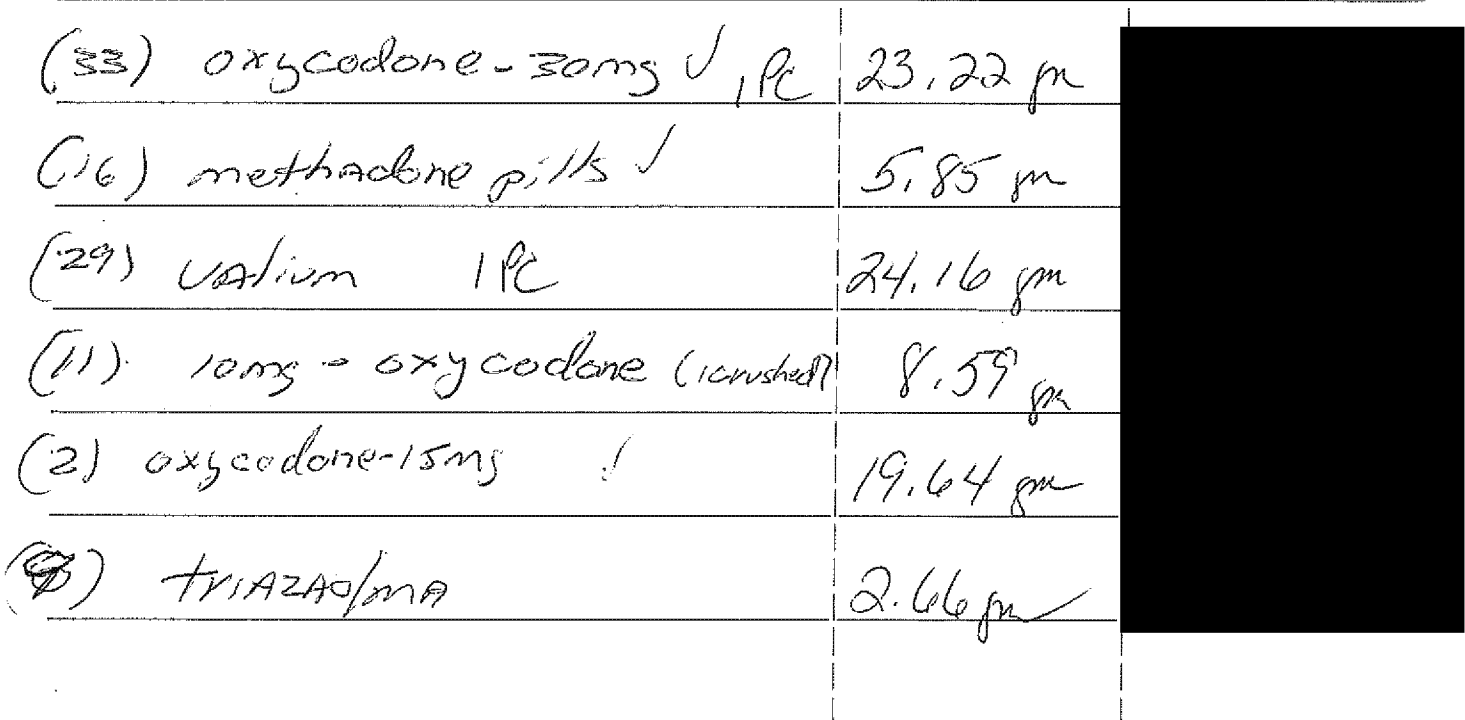 (33) oxycodone-30mg ✓, 1PC 23.22 gm
(16) methadone pills ✓ 5.85 gm
(29) VALium 1PC 24.16 gm
(11) 10mg - oxycodone (1crushed) 8.59 gm
(2) oxycodone-15mg ✓ 19.64 gm
triAZAolmA 2.66 gm